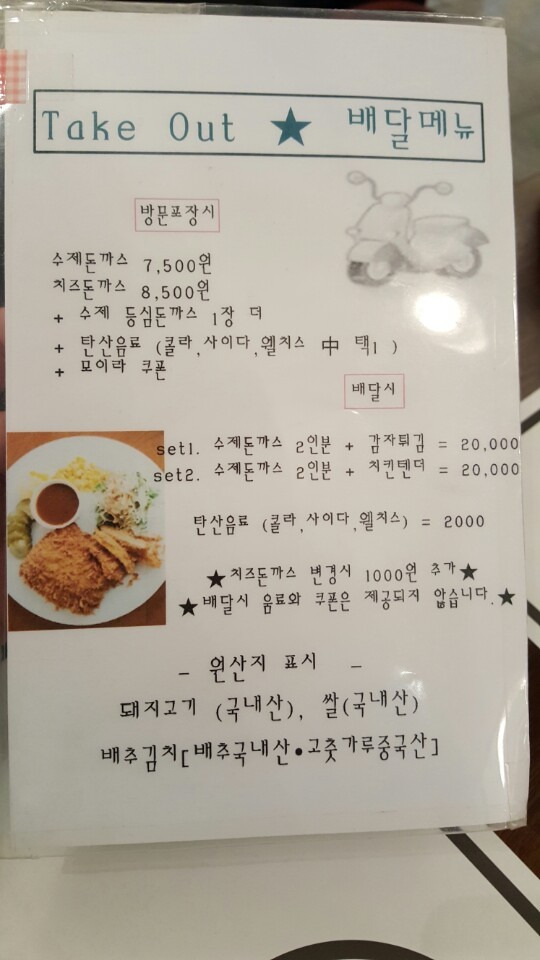 Take Out ★ 배달메뉴
방문포장시
수제돈까스 7,500원
치즈돈까스 8,500원
+ 수제 등심돈까스 1장 더
+ 탄산음료 (콜라,사이다,웰치스 中 택1 )
+ 모이라 쿠폰
배달시
set1. 수제돈까스 2인분 + 감자튀김 = 20,000
set2. 수제돈까스 2인분 + 치킨텐더 = 20,000
탄산음료 (콜라,사이다,웰치스) = 2000
★치즈돈까스 변경시 1000원 추가★
★배달시 음료와 쿠폰은 제공되지 않습니다.★
- 원산지 표시 -
돼지고기 (국내산), 쌀(국내산)
배추김치[배추국내산•고춧가루중국산]